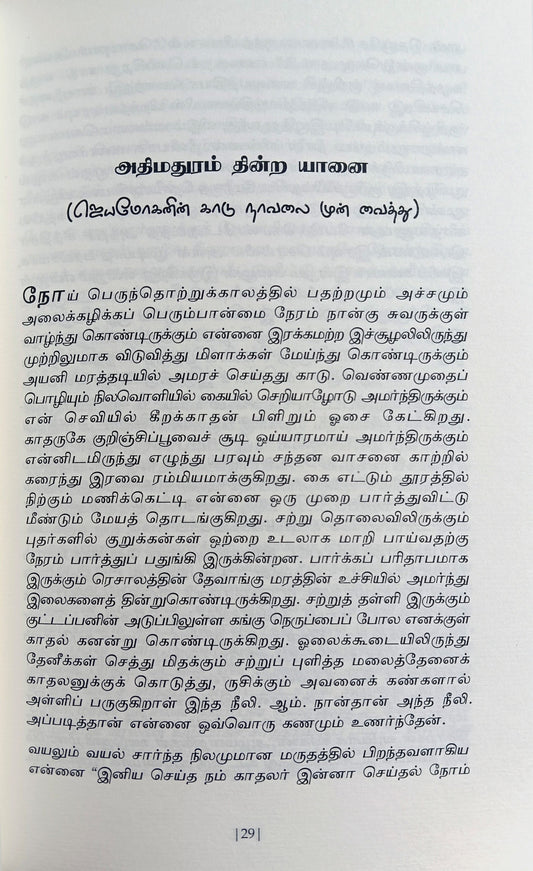 அதிமதுரம் தின்ற யானை
(ஜெயமோகனின் காடு நாவலை முன் வைத்து)
நோய் பெருந்தொற்றுக்காலத்தில் பதற்றமும் அச்சமும்
அலைக்கழிக்கப் பெரும்பான்மை நேரம் நான்கு சுவருக்குள்
வாழ்ந்து கொண்டிருக்கும் என்னை இரக்கமற்ற இச்சூழலிலிருந்து
முற்றிலுமாக விடுவித்து மிளாக்கள் மேய்ந்து கொண்டிருக்கும்
அயனி மரத்தடியில் அமரச் செய்தது காடு. வெண்ணமுதைப்
பொழியும் நிலவொளியில் கையில் செறியாழோடு அமர்ந்திருக்கும்
என் செவியில் கீறக்காதன் பிளிறும் ஓசை கேட்கிறது.
காதருகே குறிஞ்சிப்பூவைச் சூடி ஒய்யாரமாய் அமர்ந்திருக்கும்
என்னிடமிருந்து எழுந்து பரவும் சந்தன வாசனை காற்றில்
கரைந்து இரவை ரம்மியமாக்குகிறது. கை எட்டும் தூரத்தில்
நிற்கும் மணிக்கெட்டி என்னை ஒரு முறை பார்த்துவிட்டு
மீண்டும் மேயத் தொடங்குகிறது. சற்று தொலைவிலிருக்கும்
புதர்களில் குறுக்கன்கள் ஒற்றை உடலாக மாறி பாய்வதற்கு
நேரம் பார்த்துப் பதுங்கி இருக்கின்றன. பார்க்கப் பரிதாபமாக
இருக்கும் ரெசாலத்தின் தேவாங்கு மரத்தின் உச்சியில் அமர்ந்து
இலைகளைத் தின்றுகொண்டிருக்கிறது. சற்றுத் தள்ளி இருக்கும்
குட்டப்பனின் அடுப்பிலுள்ள கங்கு நெருப்பைப் போல எனக்குள்
காதல் கனன்று கொண்டிருக்கிறது. ஓலைக்கூடையிலிருந்து
தேனீக்கள் செத்து மிதக்கும் சற்றுப் புளித்த மலைத்தேனைக்
காதலனுக்குக் கொடுத்து, ருசிக்கும் அவனைக் கண்களால்
அள்ளிப் பருகுகிறாள் இந்த நீலி. ஆம். நான்தான் அந்த நீலி.
அப்படித்தான் என்னை ஒவ்வொரு கணமும் உணர்ந்தேன்.
வயலும் வயல் சார்ந்த நிலமுமான மருதத்தில் பிறந்தவளாகிய
என்னை “இனிய செய்த நம் காதலர் இன்னா செய்தல் நோம்
|29|